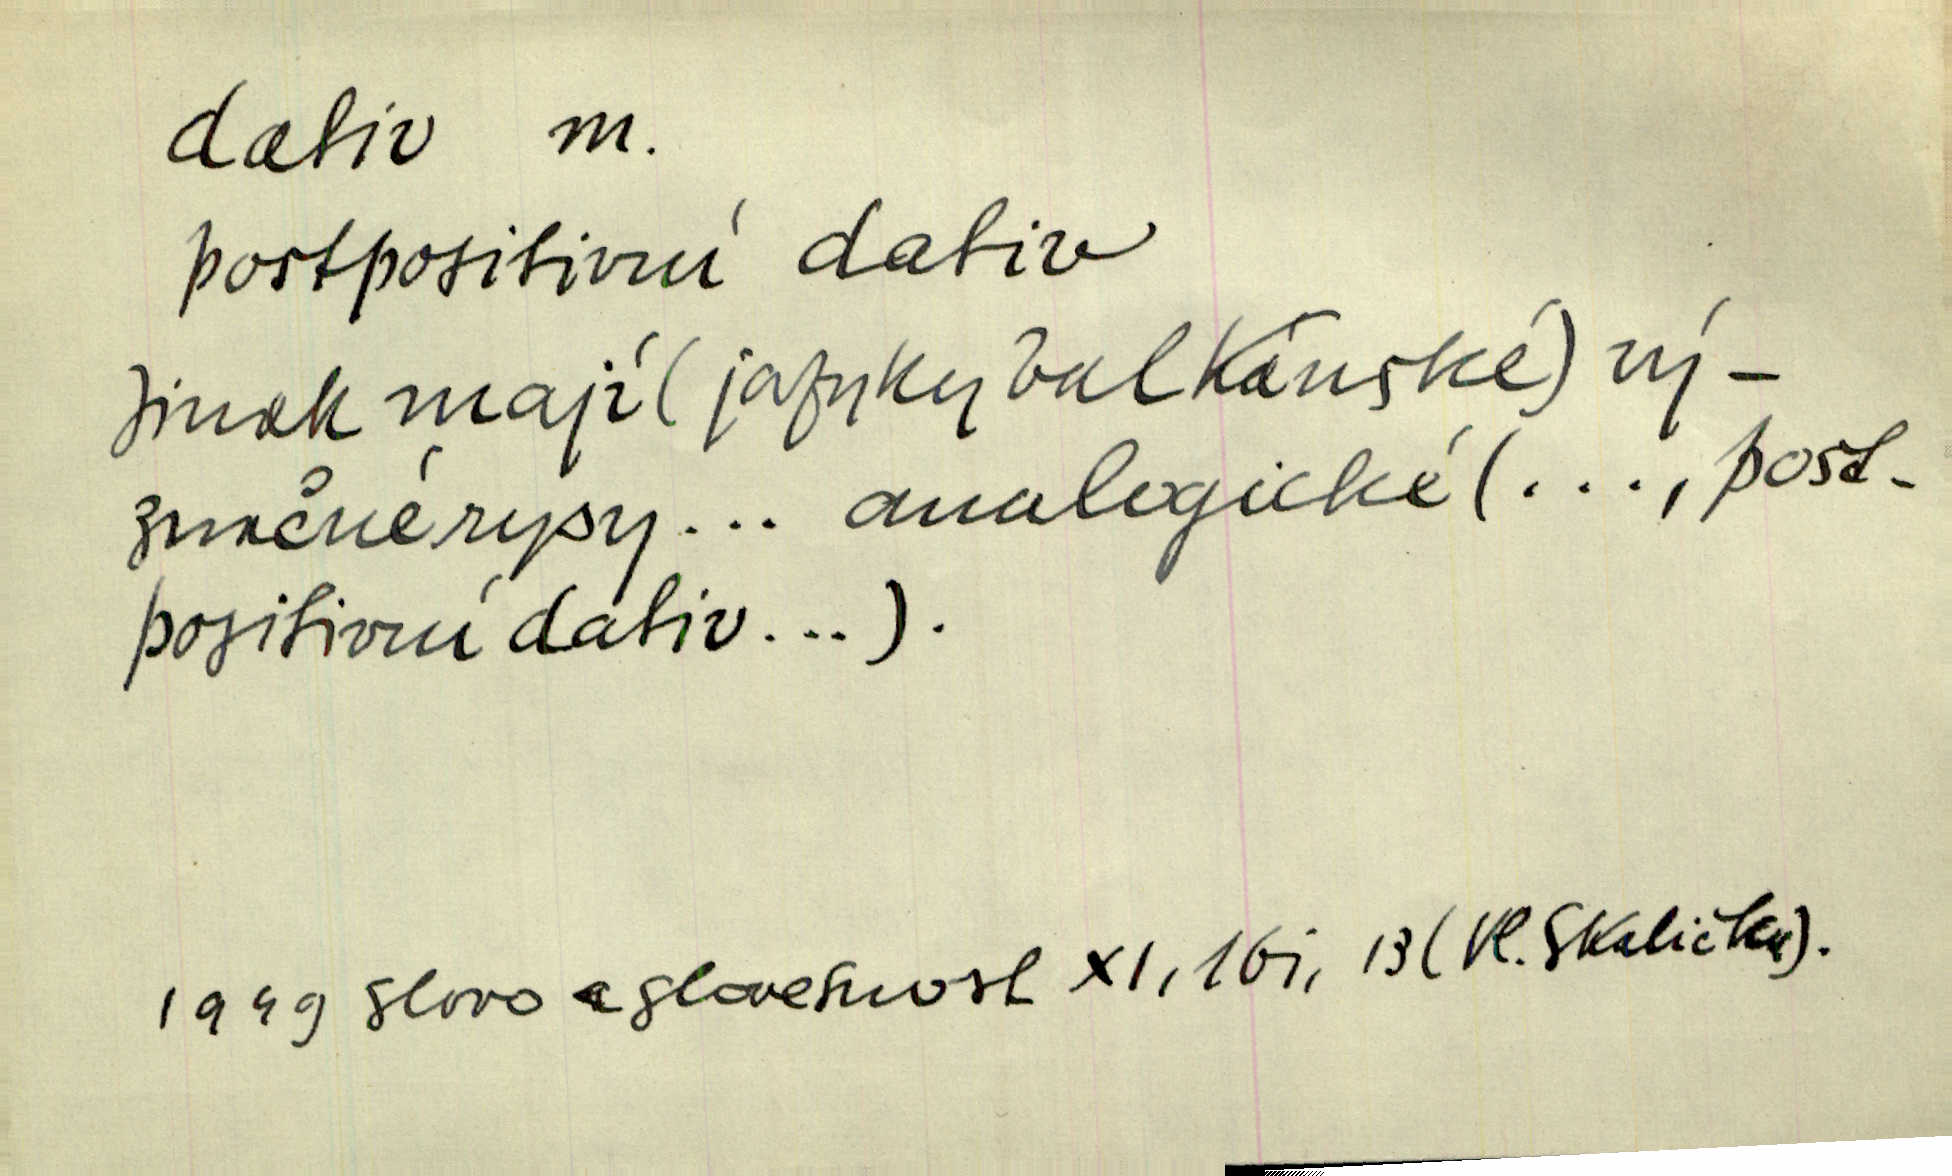 dativ m.
postpositivní dativ
Jinak mají (jazyky balkánské) vý-
značné rysy... analogické (..., post-
positivní dativ...).
1949 Slovo a slovesnost XI, 16j, 13 (Vl. Skalička).